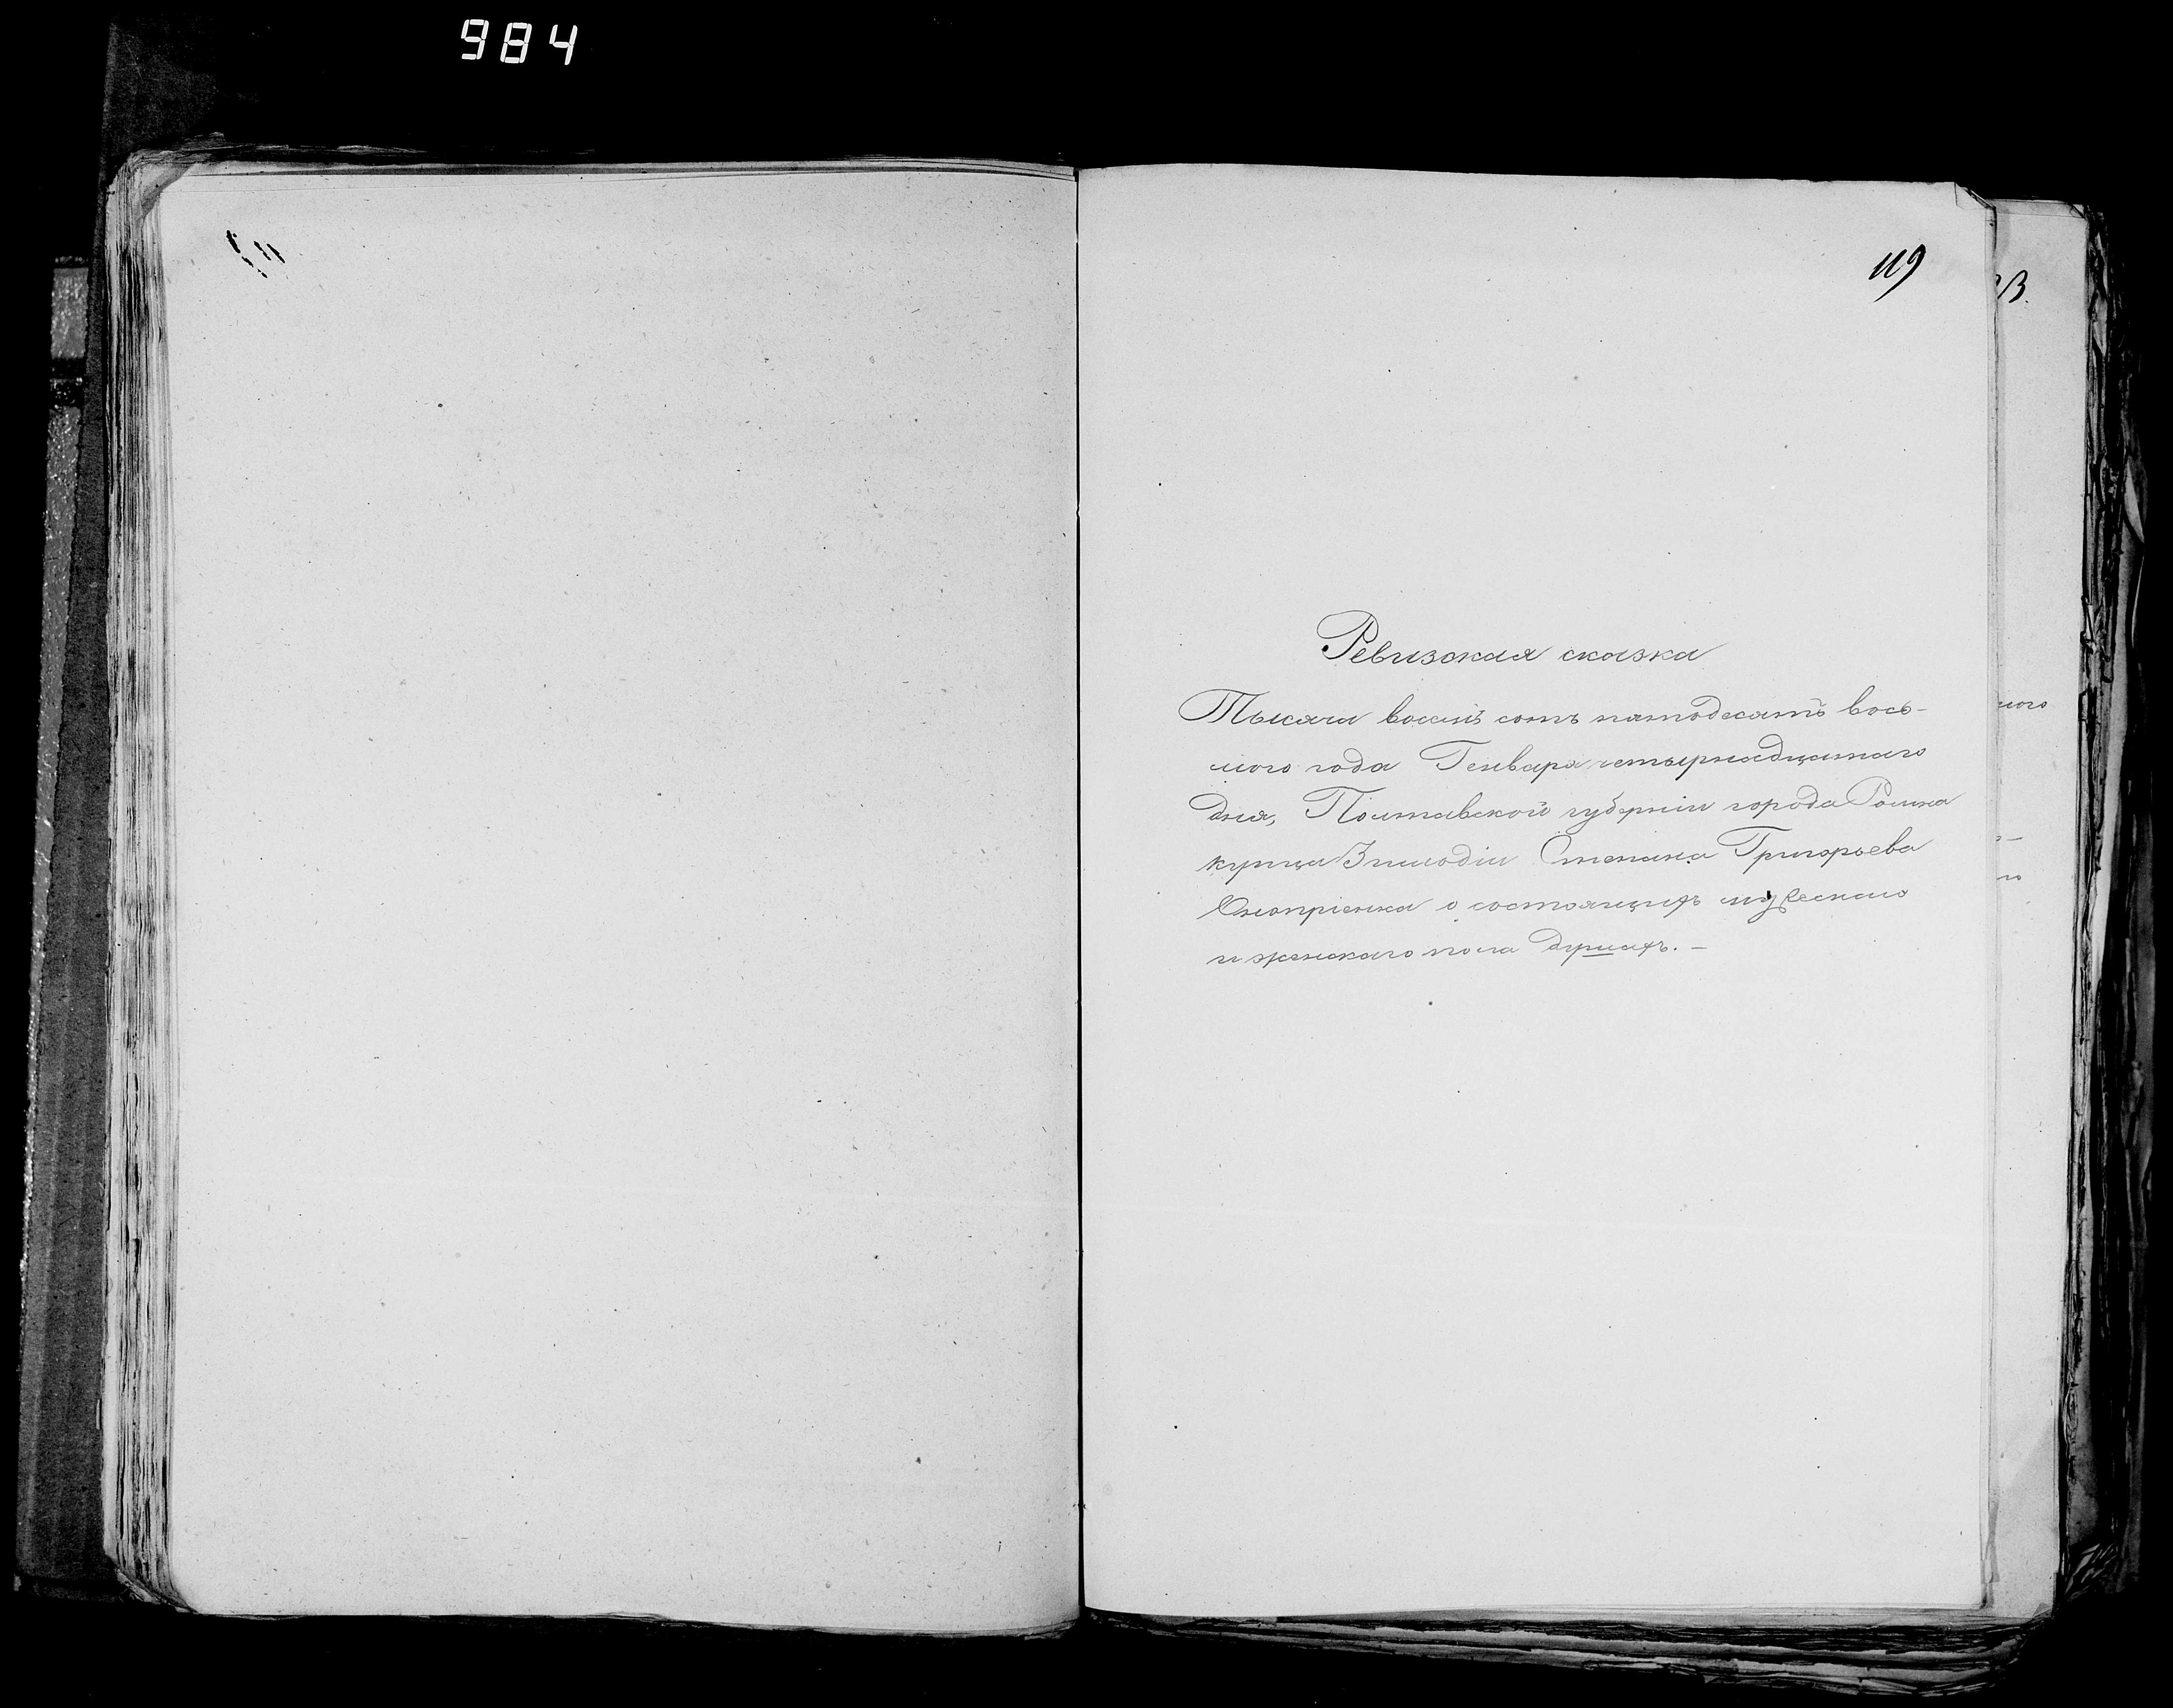 984
119
Ревизская сказка
Тысяча восемь сотъ пятодесятъ вось-
мого года Генваря четырнадцатаго
дня, Полтавской губерніи города Ромна
купца 3 гильдіи Степана Григорьева
Оноприенка о состоящихъ мужескаго
и женскаго пола душахъ. —